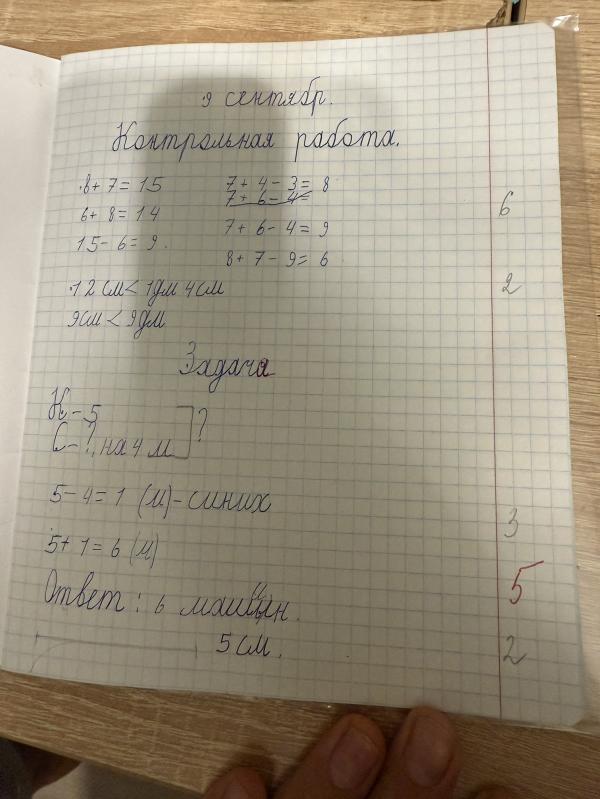 9 сентябр.
Контрольная работа.
8 + 7 = 15
6 + 8 = 14
15 - 6 = 9
7 + 4 - 3 = 8
7 + 6 - 4 =
7 + 6 - 4 = 9
8 + 7 - 9 = 6
6
12 см < 1 дм 4 см
2
9 см < 9 дм
Задача
К - 5
С - ?, на 4 м
?
5 - 4 = 1 (м) - синих
3
5 + 1 = 6 (м)
5
Ответ: 6 машин.
5 см.
2